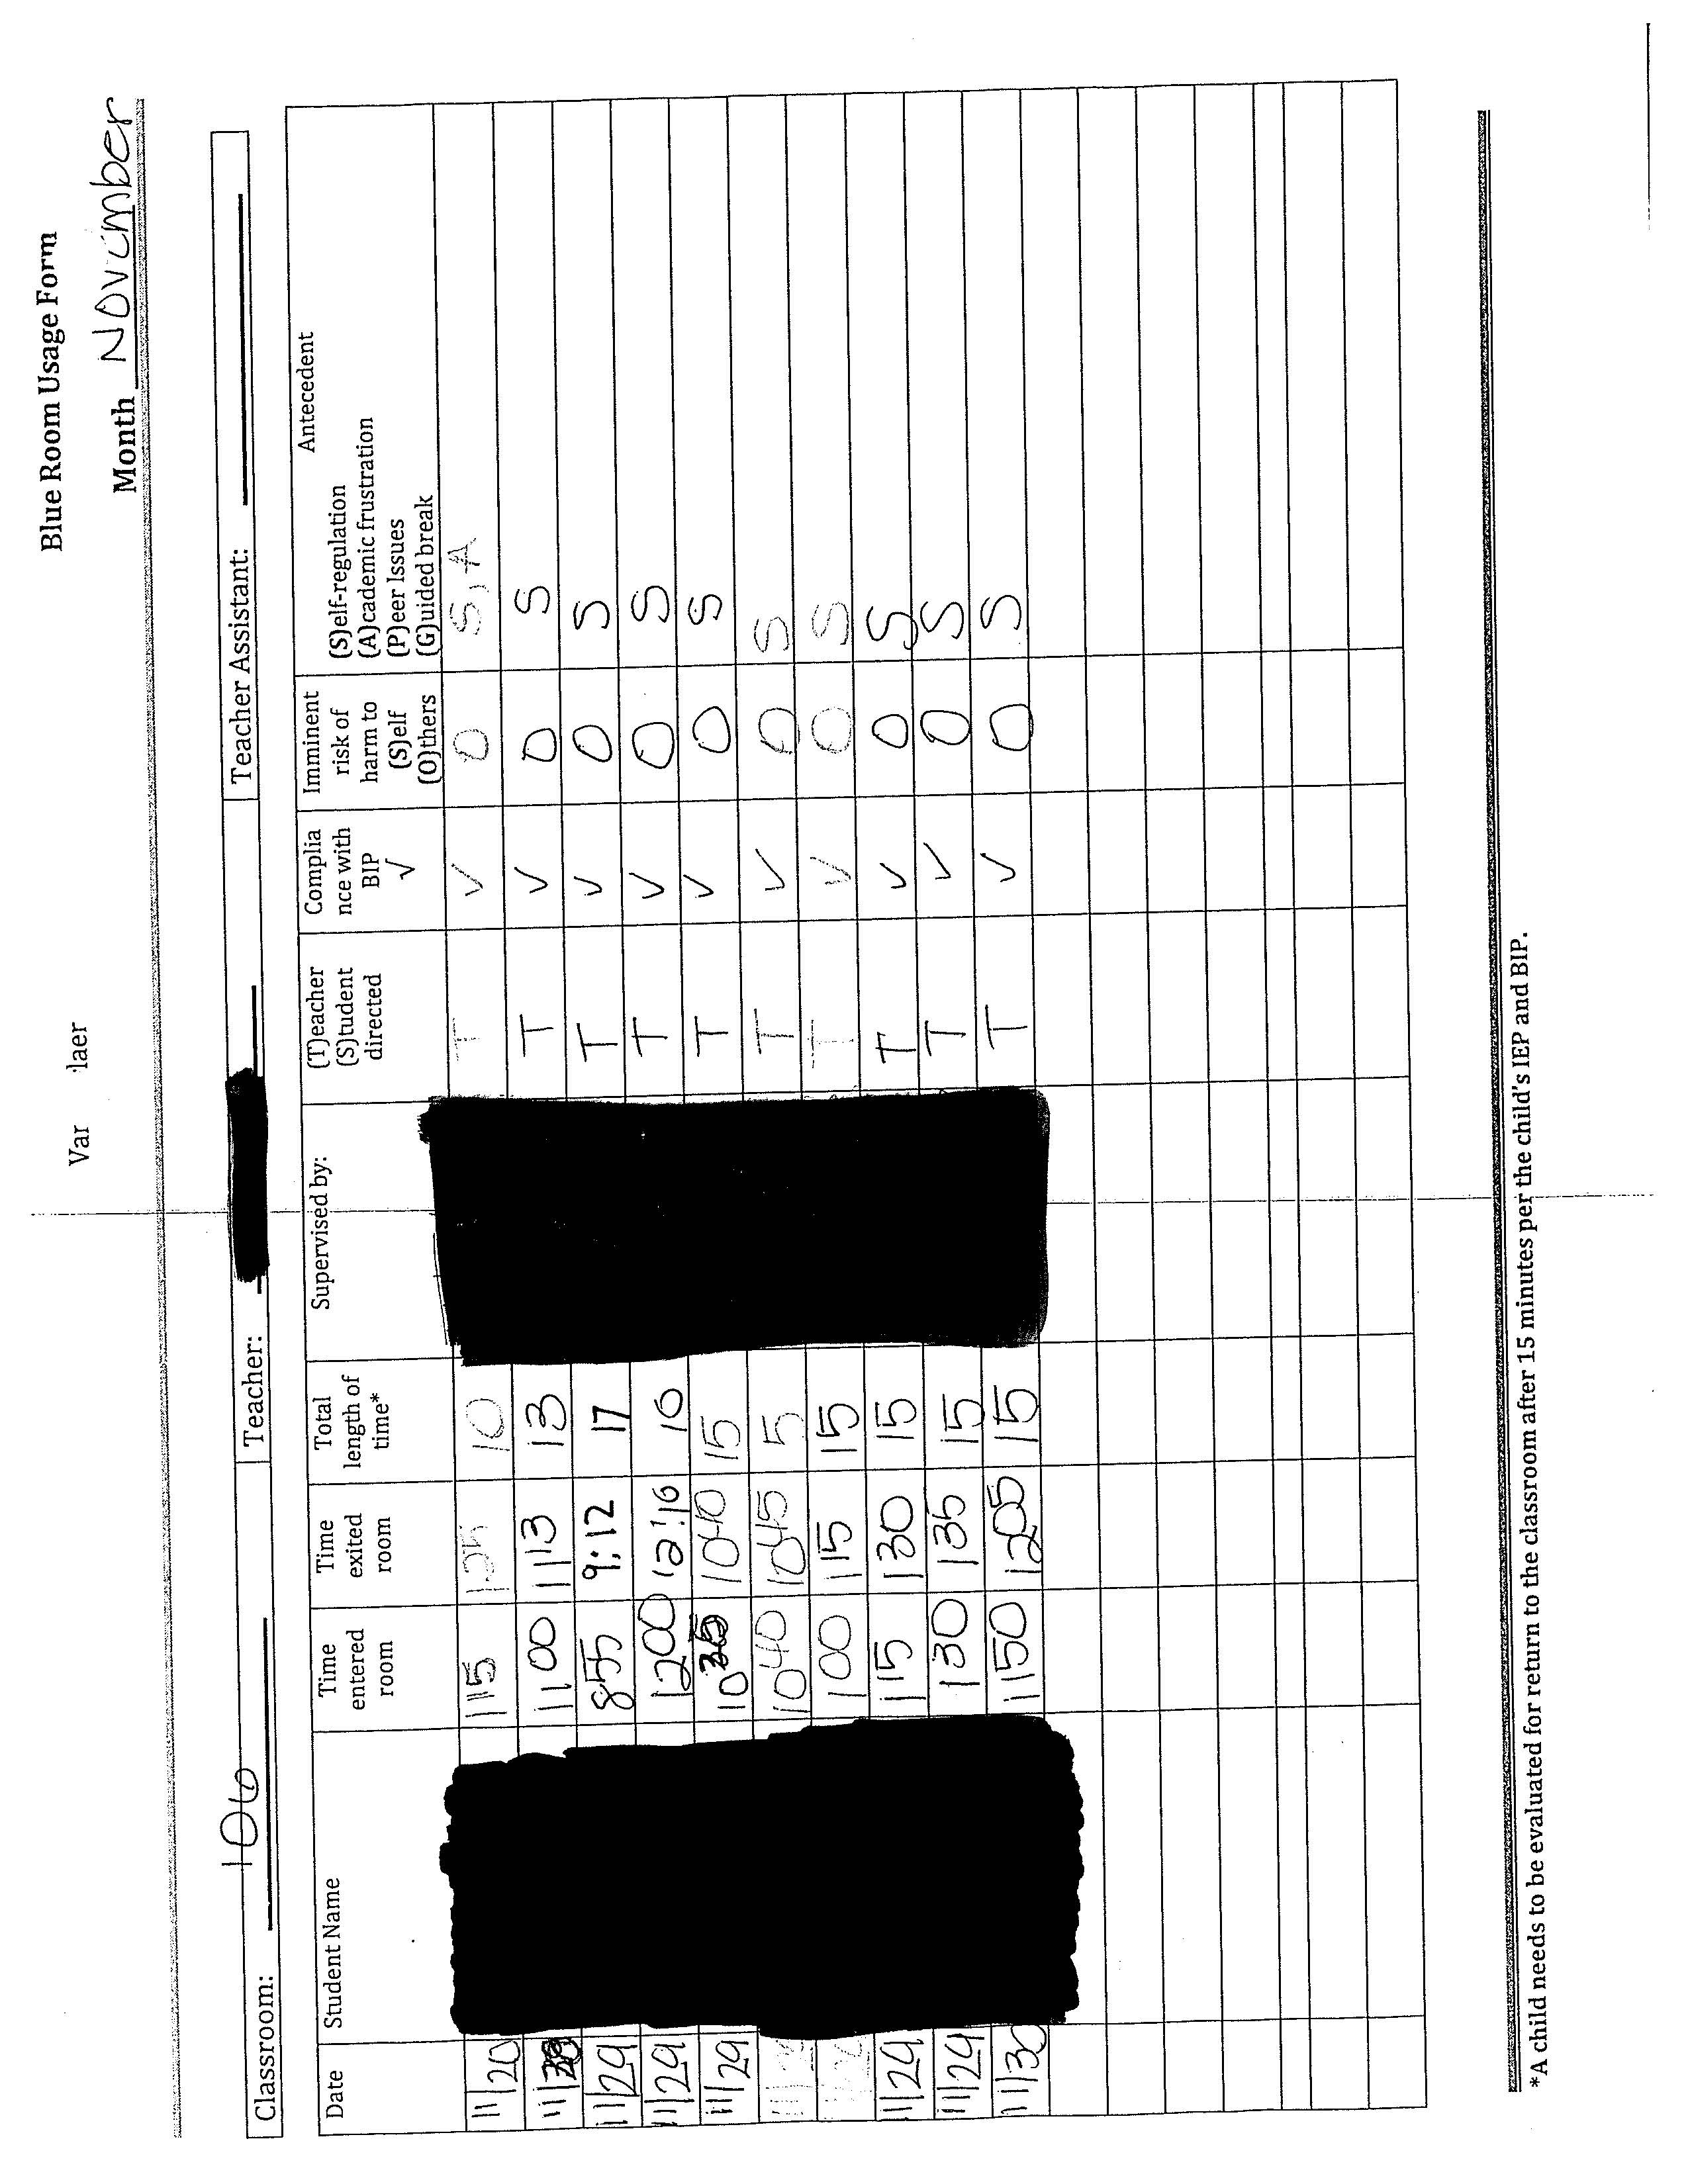 Var laer
Blue Room Usage Form
Month November
Classroom: 106 Teacher: Teacher Assistant:
Date Student Name Time entered room Time exited room Total length of time* Supervised by: (T)eacher (S)tudent directed Complia nce with BIP √ Imminent risk of harm to (S)elf (O)thers Antecedent (S)elf-regulation (A)cademic frustration (P)eer Issues (G)uided break
11/20 115 125 10 T ✓ O S, A
11/ 1100 1113 13 T ✓ O S
11/29 855 9:12 17 T ✓ O S
11/29 1200 12:10 10 T ✓ O S
11/29 1040 15 T ✓ O S
1040 1045 5 T ✓ O S
100 115 15 T ✓ O S
11/29 115 130 15 T ✓ O S
11/29 130 135 15 T ✓ O S
11/30 1150 1205 15 T ✓ O S
*A child needs to be evaluated for return to the classroom after 15 minutes per the child's IEP and BIP.